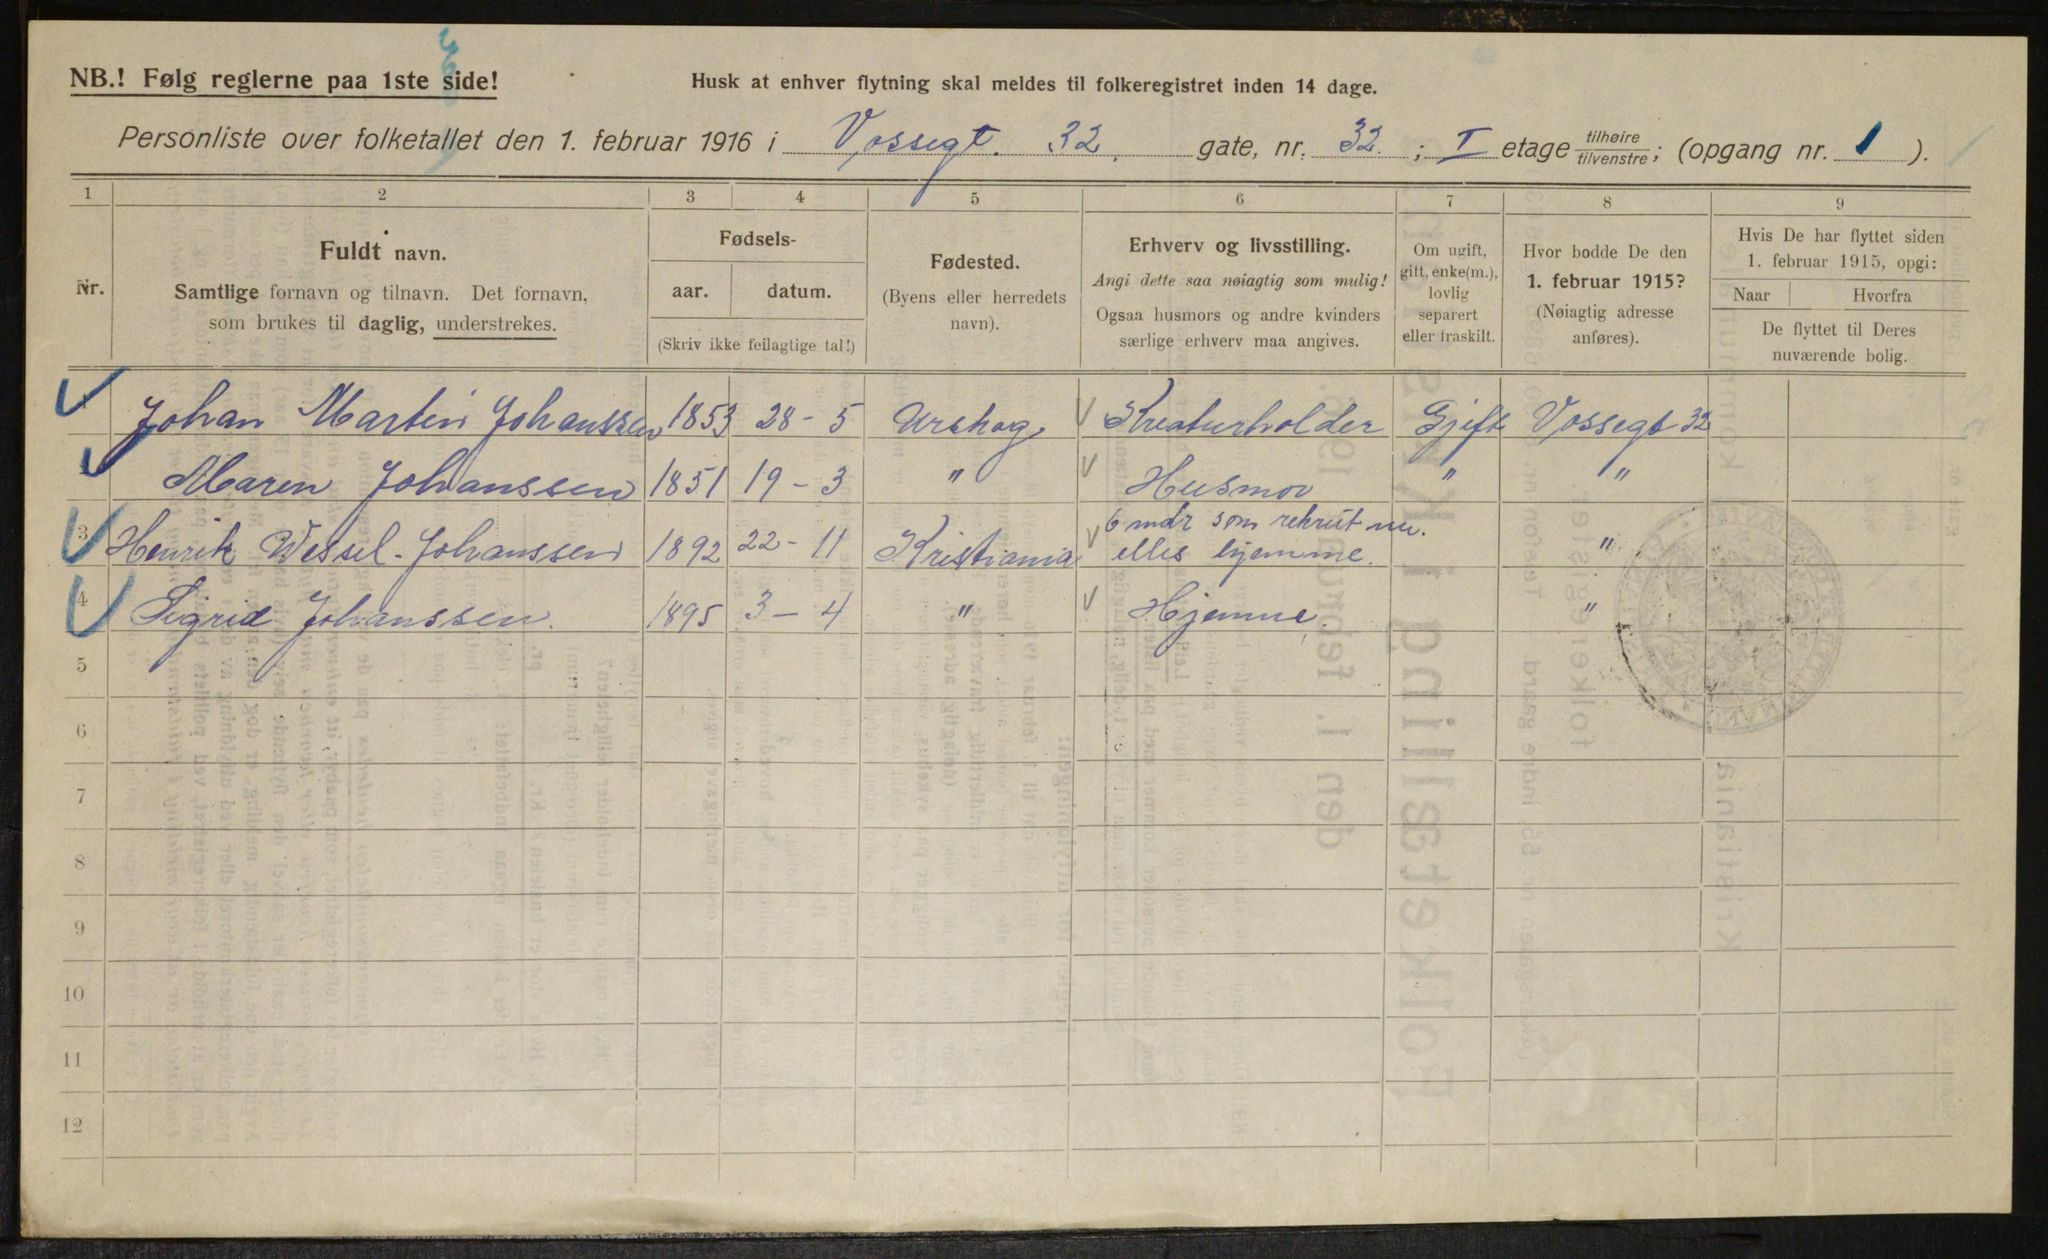 NB.! Følg reglerne paa 1ste side!
Husk at enhver flytning skal meldes til folkeregistret inden 14 dage.
Personliste over folketallet den 1. februar 1916 i Vossegt. 32, gate, nr. 32. ; I etage tilhøire/tilvenstre; (opgang nr. 1 ).
1 2 3 4 5 6 7 8 9
Nr.
Fuldt navn.
Samtlige fornavn og tilnavn. Det fornavn,
som brukes til daglig, understrekes.
Fødsels-
aar. datum.
(Skriv ikke feilagtige tal!)
Fødested.
(Byens eller herredets
navn).
Erhverv og livsstilling.
Angi dette saa nøiagtig som mulig!
Ogsaa husmors og andre kvinders
særlige erhverv maa angives.
Om ugift,
gift, enke(m.),
lovlig
separert
eller fraskilt.
Hvor bodde De den
1. februar 1915?
(Nøiagtig adresse
anføres).
Hvis De har flyttet siden
1. februar 1915, opgi:
Naar Hvorfra
De flyttet til Deres
nuværende bolig.
Johan Martin Johanssen 1853 28-5 Urskog Kreaturholder Gift Vossegt 32
Maren Johanssen 1851 19-3 " Husmor " "
3 Henrik Wessel-Johanssen 1892 22-11 Kristiania 6 mdr som rekrut nu.
elles hjemme. "
4 Sigrid Johanssen. 1895 3-4 " Hjemme. "
5
6
7
8
9
10
11
12